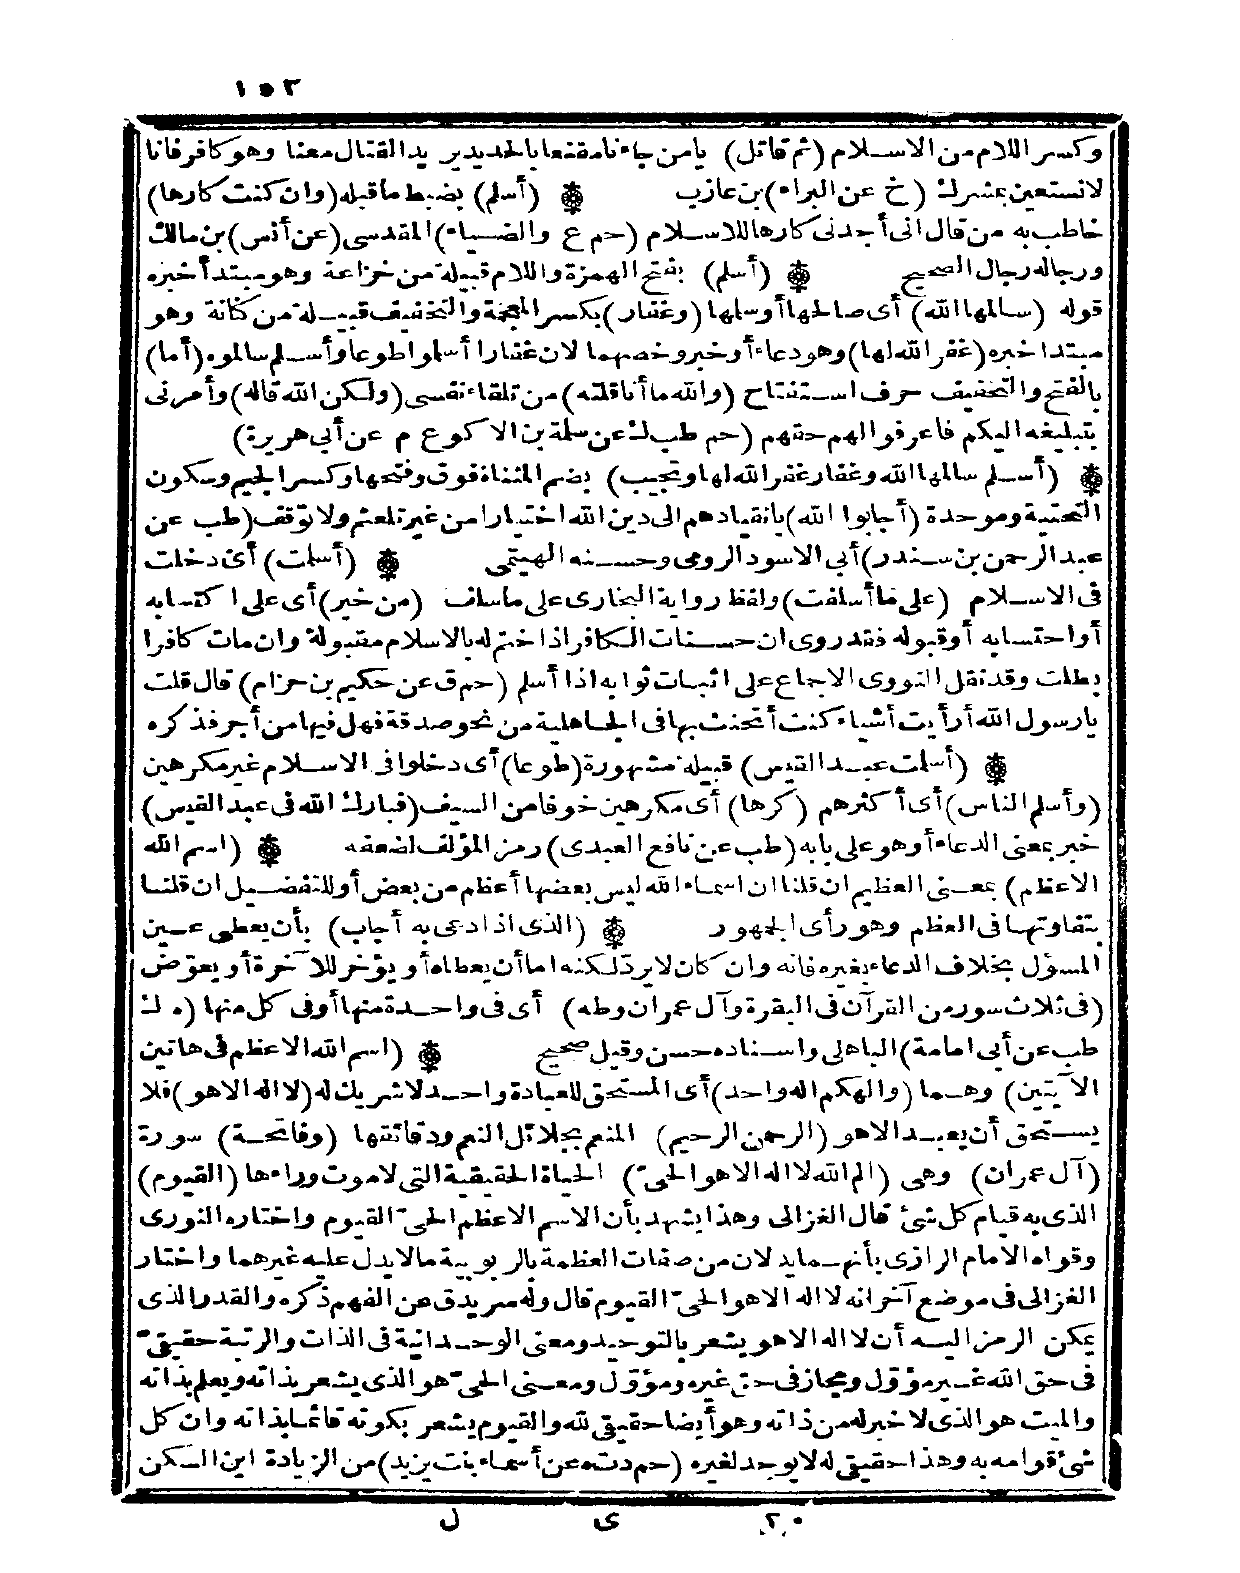 ١٥٣
وكسر اللام من الاسلام (ثم قاتل) يا من جاءنا مقنعا بالحديد يريد القتال معنا وهو كافر فانا
لا نستعين بمشرك (خ عن البراء) بن عازب ۞ (أسلم) بضبط ما قبله (وان كنت كارها)
خاطب به من قال انى أجدنى كارها للاسلام (حم ع والضياء) المقدسى (عن أنس) بن مالك
ورجاله رجال الصحيح ۞ (أسلم) بفتح الهمزة واللام قبيلة من خزاعة وهو مبتدأ خبره
قوله (سالمها الله) أى صالحها أو سلمها (وغفار) بكسر المعجمة والتخفيف قبيلة من كنانة وهو
مبتدا خبره (غفر الله لها) وهو دعاء أو خبر وخصهما لان غفارا أسلموا طوعا وأسلم سالموه (أما)
بالفتح والتخفيف حرف استفتاح (والله ما أنا قلته) من تلقاء نفسى (ولكن الله قاله) وأمرنى
بتبليغه اليكم فاعرفوا لهم حقهم (حم طب ك عن سلمة بن الاكوع م عن أبى هريرة)
۞ (أسلم سالمها الله وغفار غفر الله لها وتجيب) بضم المثناة فوق وفتحها وكسر الجيم وسكون
التحتية وموحدة (أجابوا الله) بانقيادهم الى دين الله اختيارا من غير تلعثم ولا توقف (طب عن
عبد الرحمن بن سندر) أبى الاسود الرومى وحسنه الهيتمى ۞ (أسلمت) أى دخلت
فى الاسلام (على ما أسلفت) ولفظ رواية البخارى على ما سلف (من خير) أى على اكتسابه
أو احتسابه أو قبوله فقد روى ان حسنات الكافر اذا ختم له بالاسلام مقبولة وان مات كافرا
بطلت وقد نقل النووى الاجماع على اثبات ثوابه اذا أسلم (حم ق عن حكيم بن حزام) قال قلت
يا رسول الله أرأيت أشياء كنت أتحنث بها فى الجاهلية من نحو صدقة فهل فيها من أجر فذكره
۞ (أسلمت عبد القيس) قبيلة مشهورة (طوعا) أى دخلوا فى الاسلام غير مكرهين
(وأسلم الناس) أى أكثرهم (كرها) أى مكرهين خوفا من السيف (فبارك الله فى عبد القيس)
خبر بمعنى الدعاء أو هو على بابه (طب عن نافع العبدى) رمز المؤلف لضعفه ۞ (اسم الله
الاعظم) بمعنى العظيم ان قلنا ان اسماء الله ليس بعضها أعظم من بعض أو للتفضيل ان قلنا
بتفاوتها فى العظم وهو رأى الجمهور ۞ (الذى اذا دعى به أجاب) بأن يعطى عين
المسؤل بخلاف الدعاء بغيره فانه وان كان لا يردّ لكنه اما أن يعطاه أو يؤخر للآخرة أو يعوّض
(فى ثلاث سور من القرآن فى البقرة وآل عمران وطه) أى فى واحدة منها أو فى كل منها (ه ك
طب عن أبى امامة) الباهلى واسناده حسن وقيل صحيح ۞ (اسم الله الاعظم فى هاتين
الآيتين) وهما (والهكم اله واحد) أى المستحق للعبادة واحد لا شريك له (لا اله الا هو) فلا
يستحق أن يعبد الا هو (الرحمن الرحيم) المنعم بجلائل النعم ودقائقها (وفاتحة) سورة
(آل عمران) وهى (الم الله لا اله الا هو الحىّ) الحياة الحقيقية التى لا موت وراءها (القيوم)
الذى به قيام كل شئ قال الغزالى وهذا يشهد بأن الاسم الاعظم الحىّ القيوم واختاره النورى
وقواه الامام الرازى بأنهما يدلان من صفات العظمة بالربوبية ما لا يدل عليه غيرهما واختار
الغزالى فى موضع آخر انه لا اله الا هو الحىّ القيوم قال وله سر يدق عن الفهم ذكره والقدر الذى
يمكن الرمز اليه أن لا اله الا هو يشعر بالتوحيد ومعنى الوحدانية فى الذات والرتبة حقيقىّ
فى حق الله غير مؤول ومجاز فى حق غيره ومؤول ومعنى الحىّ هو الذى يشعر بذاته ويعلم بذاته
والميت هو الذى لا خبر له من ذاته وهو أيضا حقيقى لله والقيوم يشعر بكونه قائما بذاته وان كل
شئ قوامه به وهذا حقيقى له لا يوجد لغيره (حم د ت ه عن أسماء بنت يزيد) من الزيادة ابن السكن
٢٠ ى ل